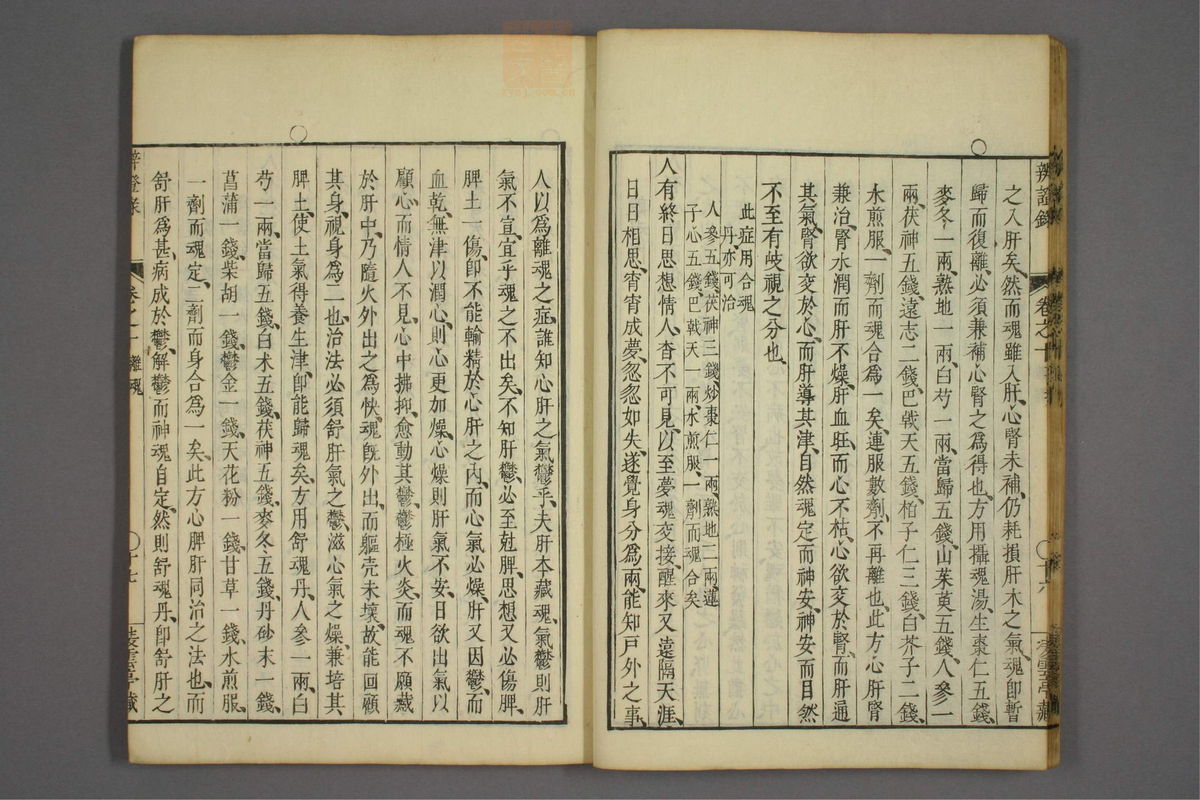 之入肝矣然而魂雖入肝心腎未補仍耗損肝木之氣魂卽暫
歸而復離必須兼補心腎之爲得也方用攝魂湯生棗仁五錢
麥冬一兩熟地一兩白芍一兩當歸五錢山茱萸五錢人參一
兩茯神五錢遠志二錢巴戟天五錢柏子仁三錢白芥子二錢
水煎服一劑而魂合爲一矣連服數劑不再離也此方心肝腎
兼治腎水潤而肝不燥肝血旺而心不枯心欲交於腎而肝通
其氣腎欲交於心而肝導其津自然魂定而神安神安而目然
不至有歧視之分也
此症用合魂
丹亦可治
人參五錢茯神三錢炒棗仁一兩熟地二兩蓮
子心五錢巴戟天一兩水煎服一劑而魂合矣
人有終日思想情人杳不可見以至夢魂交接醒來又遠隔天涯
日日相思宵宵成夢忽忽如失遂覺身分爲兩能知戸外之事
辨證錄
卷之一
十六
人以爲離魂之症誰知心肝之氣鬱乎夫肝本藏魂氣鬱則肝
氣不宣宜乎魂之不出矣不知肝鬱必至尅脾思想又必傷脾
脾土一傷卽不能輸精於心肝之內而心氣必燥肝又因鬱而
血乾無津以潤心則心更加燥心燥則肝氣不安日欲出氣以
顧心而情人不見心中拂抑愈動其鬱鬱極火炎而魂不願藏
於肝中乃隨火外出之爲快魂旣外出而軀壳未壞故能回顧
其身視身爲二也治法必須舒肝氣之鬱滋心氣之燥兼培其
脾土使土氣得養生津卽能歸魂矣方用舒魂丹人參一兩白
芍一兩當歸五錢白朮五錢茯神五錢麥冬五錢丹砂末一錢
菖蒲一錢柴胡一錢鬱金一錢天花粉一錢甘草一錢水煎服
一劑而魂定二劑而身合爲一矣此方心脾肝同治之法也而
舒肝爲甚病成於鬱解鬱而神魂自定然則舒魂丹卽舒肝之
卷之一 離魂
十七